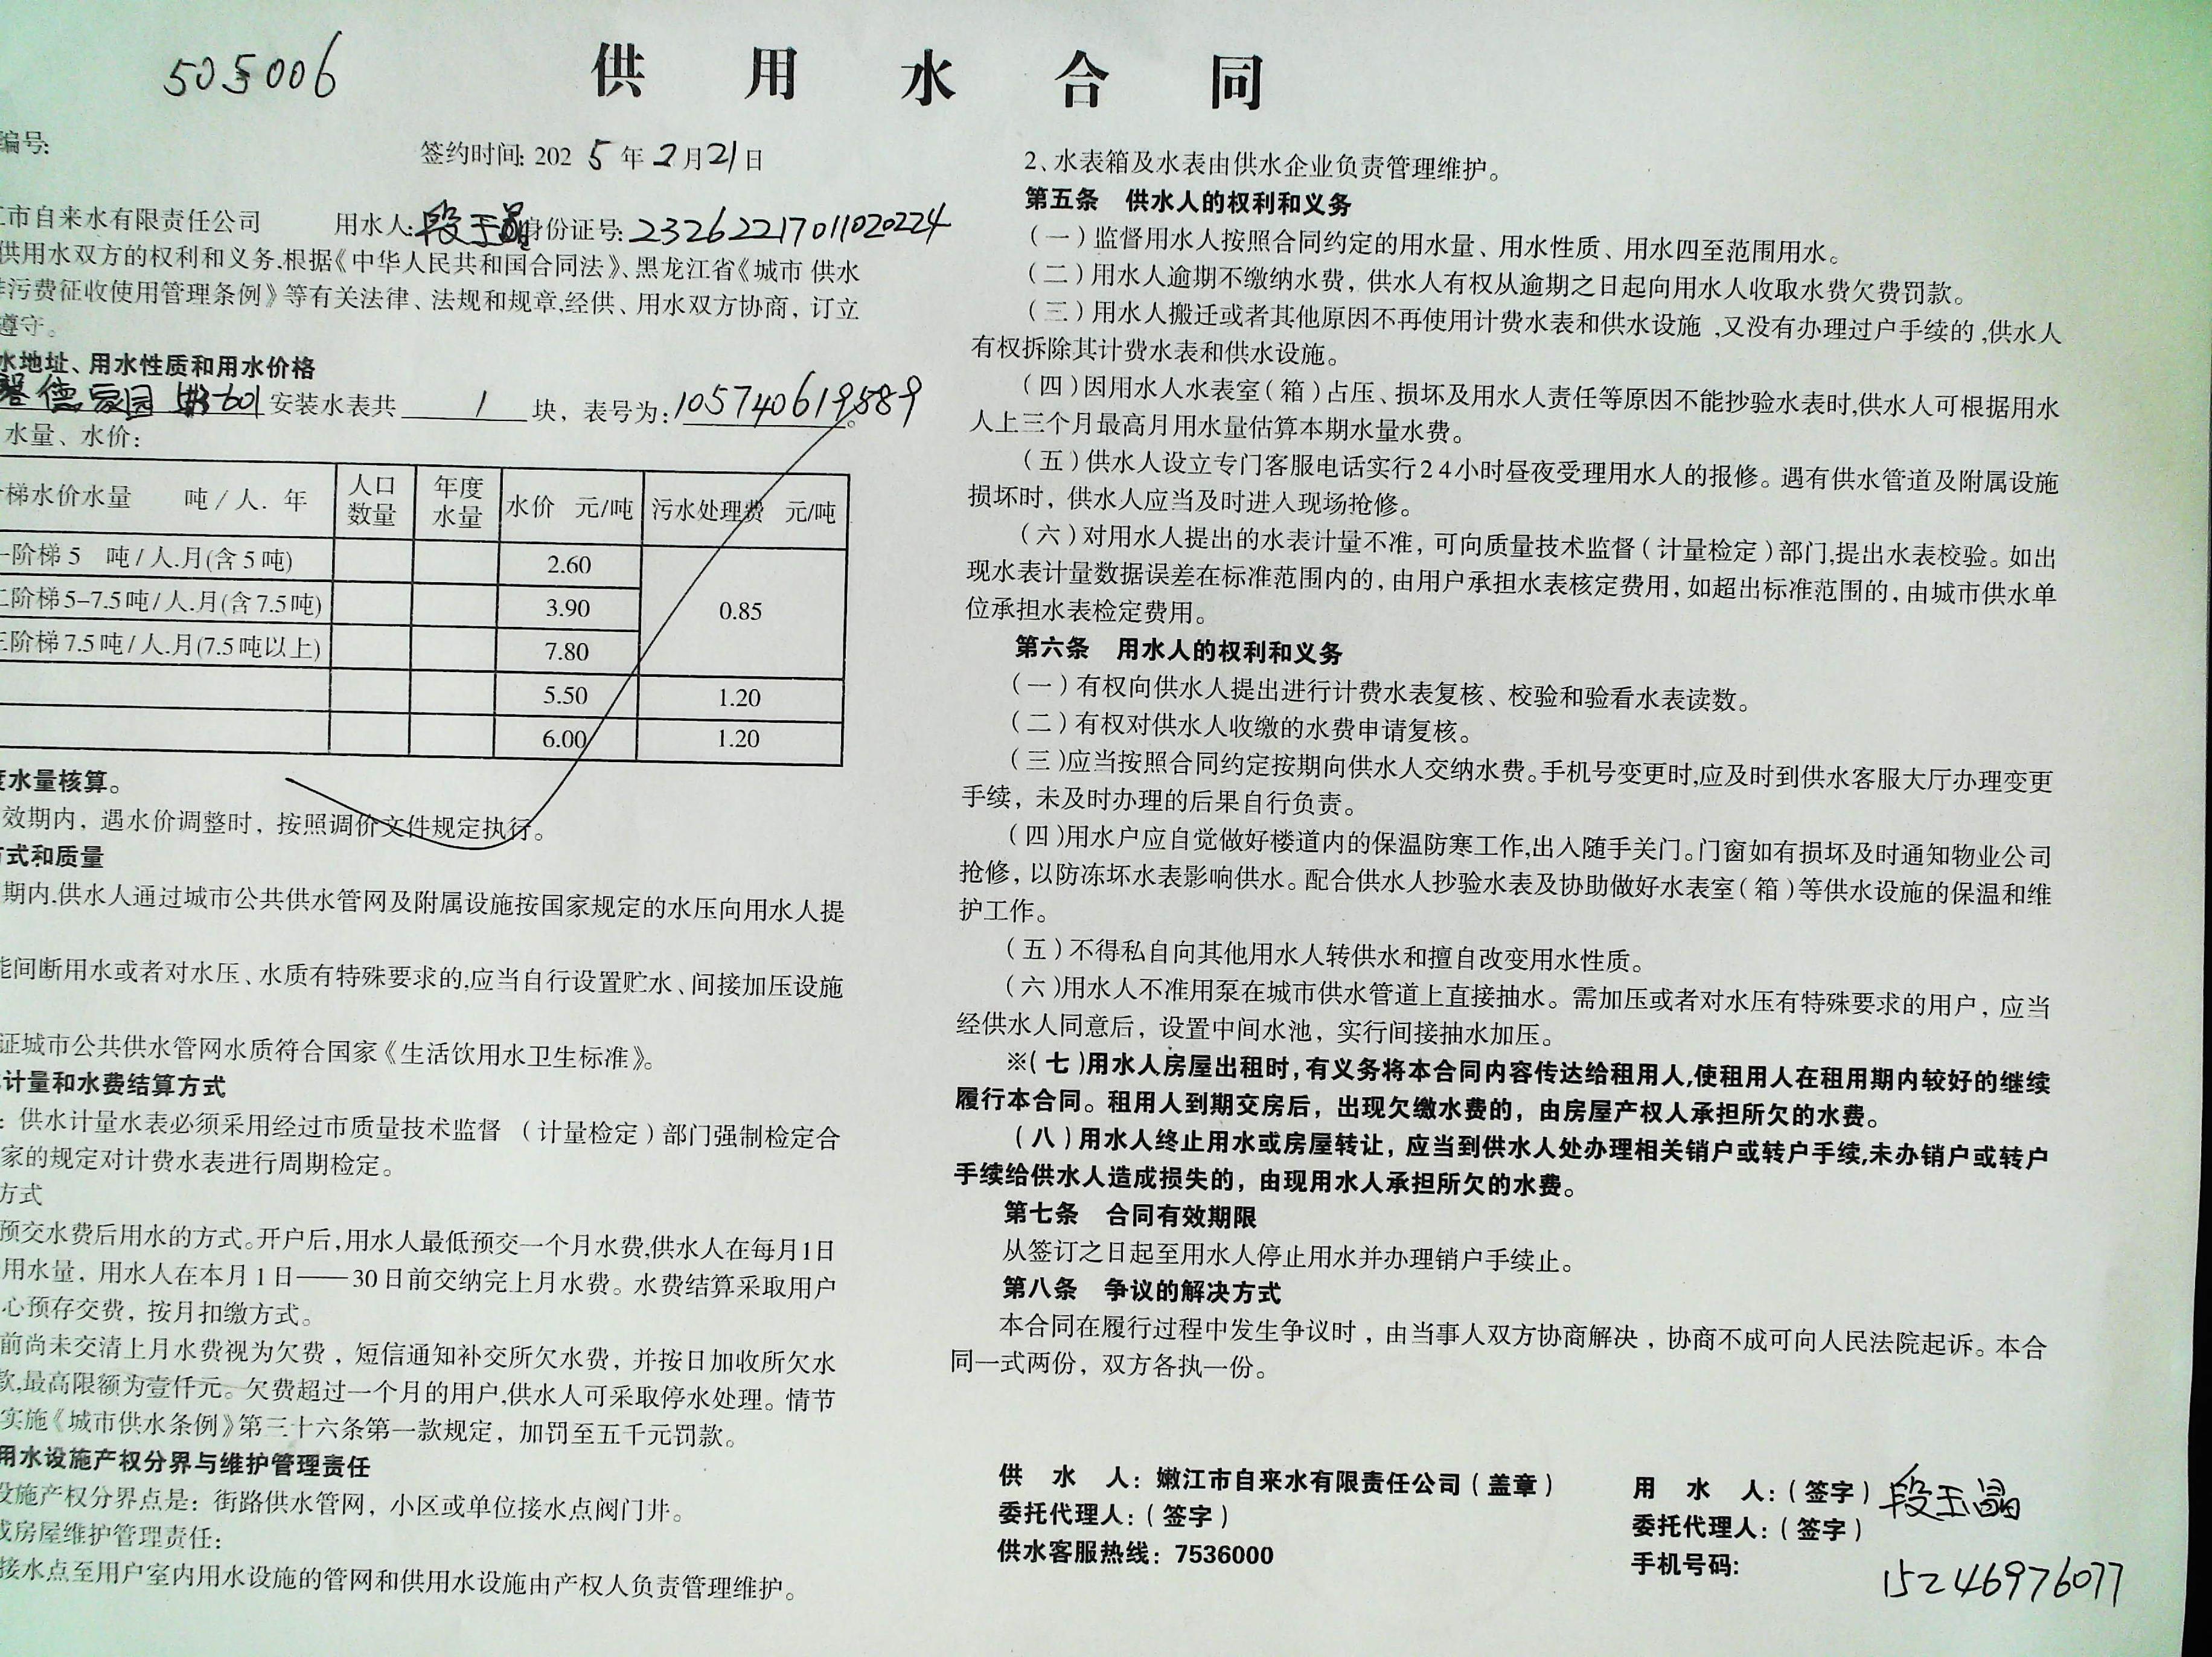 505006
供用水合同
编号:
签约时间: 2025年2月21日
江市自来水有限责任公司 用水人: 段玉晶 身份证号: 23262217011020224
供用水双方的权利和义务,根据《中华人民共和国合同法》、黑龙江省《城市 供水
污费征收使用管理条例》等有关法律、法规和规章,经供、用水双方协商, 订立
遵守。
水地址、用水性质和用水价格
德家园 601 安装水表共 1 块, 表号为: 105740619589。
水量、水价:
阶梯水价水量 吨/人. 年 人口数量 年度水量 水价 元/吨 污水处理费 元/吨
一阶梯5 吨/人.月(含5吨) 2.60 0.85
二阶梯5-7.5吨/人.月(含7.5吨) 3.90
三阶梯7.5吨/人.月(7.5吨以上) 7.80
5.50 1.20
6.00 1.20
度水量核算。
效期内, 遇水价调整时, 按照调价文件规定执行。
方式和质量
期内,供水人通过城市公共供水管网及附属设施按国家规定的水压向用水人提
能间断用水或者对水压、水质有特殊要求的,应当自行设置贮水、间接加压设施
证城市公共供水管网水质符合国家《生活饮用水卫生标准》。
计量和水费结算方式
: 供水计量水表必须采用经过市质量技术监督 (计量检定)部门强制检定合
家的规定对计费水表进行周期检定。
方式
预交水费后用水的方式。开户后,用水人最低预交一个月水费,供水人在每月1日
用水量, 用水人在本月1日——30日前交纳完上月水费。水费结算采取用户
心预存交费, 按月扣缴方式。
前尚未交清上月水费视为欠费, 短信通知补交所欠水费, 并按日加收所欠水
款,最高限额为壹仟元。欠费超过一个月的用户,供水人可采取停水处理。情节
实施《城市供水条例》第三十六条第一款规定, 加罚至五千元罚款。
用水设施产权分界与维护管理责任
设施产权分界点是: 街路供水管网, 小区或单位接水点阀门井。
或房屋维护管理责任:
接水点至用户室内用水设施的管网和供用水设施由产权人负责管理维护。
2、水表箱及水表由供水企业负责管理维护。
第五条 供水人的权利和义务
(一)监督用水人按照合同约定的用水量、用水性质、用水四至范围用水。
(二)用水人逾期不缴纳水费, 供水人有权从逾期之日起向用水人收取水费欠费罚款。
(三)用水人搬迁或者其他原因不再使用计费水表和供水设施 ,又没有办理过户手续的,供水人
有权拆除其计费水表和供水设施。
(四)因用水人水表室(箱)占压、损坏及用水人责任等原因不能抄验水表时,供水人可根据用水
人上三个月最高月用水量估算本期水量水费。
(五)供水人设立专门客服电话实行24小时昼夜受理用水人的报修。遇有供水管道及附属设施
损坏时, 供水人应当及时进入现场抢修。
(六)对用水人提出的水表计量不准, 可向质量技术监督(计量检定)部门,提出水表校验。如出
现水表计量数据误差在标准范围内的, 由用户承担水表核定费用, 如超出标准范围的, 由城市供水单
位承担水表检定费用。
第六条 用水人的权利和义务
(一)有权向供水人提出进行计费水表复核、校验和验看水表读数。
(二)有权对供水人收缴的水费申请复核。
(三)应当按照合同约定按期向供水人交纳水费。手机号变更时,应及时到供水客服大厅办理变更
手续, 未及时办理的后果自行负责。
(四)用水户应自觉做好楼道内的保温防寒工作,出入随手关门。门窗如有损坏及时通知物业公司
抢修, 以防冻坏水表影响供水。配合供水人抄验水表及协助做好水表室(箱)等供水设施的保温和维
护工作。
(五)不得私自向其他用水人转供水和擅自改变用水性质。
(六)用水人不准用泵在城市供水管道上直接抽水。需加压或者对水压有特殊要求的用户, 应当
经供水人同意后, 设置中间水池, 实行间接抽水加压。
※(七)用水人房屋出租时,有义务将本合同内容传达给租用人,使租用人在租用期内较好的继续
履行本合同。租用人到期交房后, 出现欠缴水费的, 由房屋产权人承担所欠的水费。
(八)用水人终止用水或房屋转让, 应当到供水人处办理相关销户或转户手续,未办销户或转户
手续给供水人造成损失的, 由现用水人承担所欠的水费。
第七条 合同有效期限
从签订之日起至用水人停止用水并办理销户手续止。
第八条 争议的解决方式
本合同在履行过程中发生争议时, 由当事人双方协商解决, 协商不成可向人民法院起诉。本合
同一式两份, 双方各执一份。
供 水 人: 嫩江市自来水有限责任公司(盖章)
委托代理人:(签字)
供水客服热线: 7536000
用 水 人:(签字) 段玉晶
委托代理人:(签字)
手机号码: 15246976077